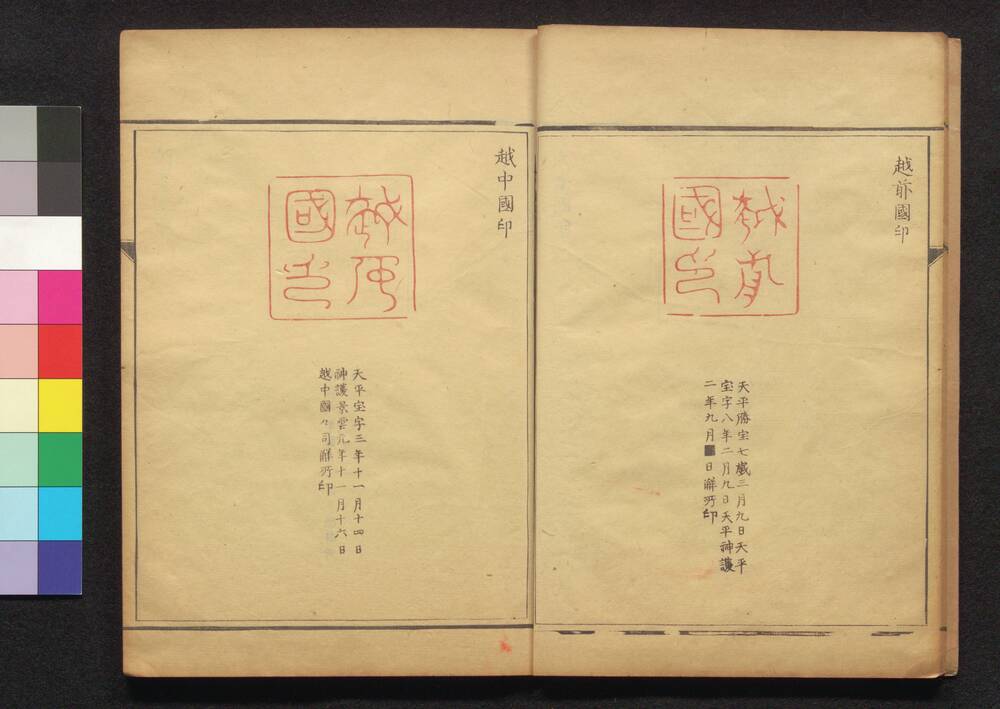 越前國印
越前
國印
天平勝宝七歳三月九日天平
宝字八年二月九日天平神護
二年九月 日牒所印
越中國印
越中
國印
天平宝字三年十一月十四日
神護景雲元年十一月十六日
越中國々司牒所印